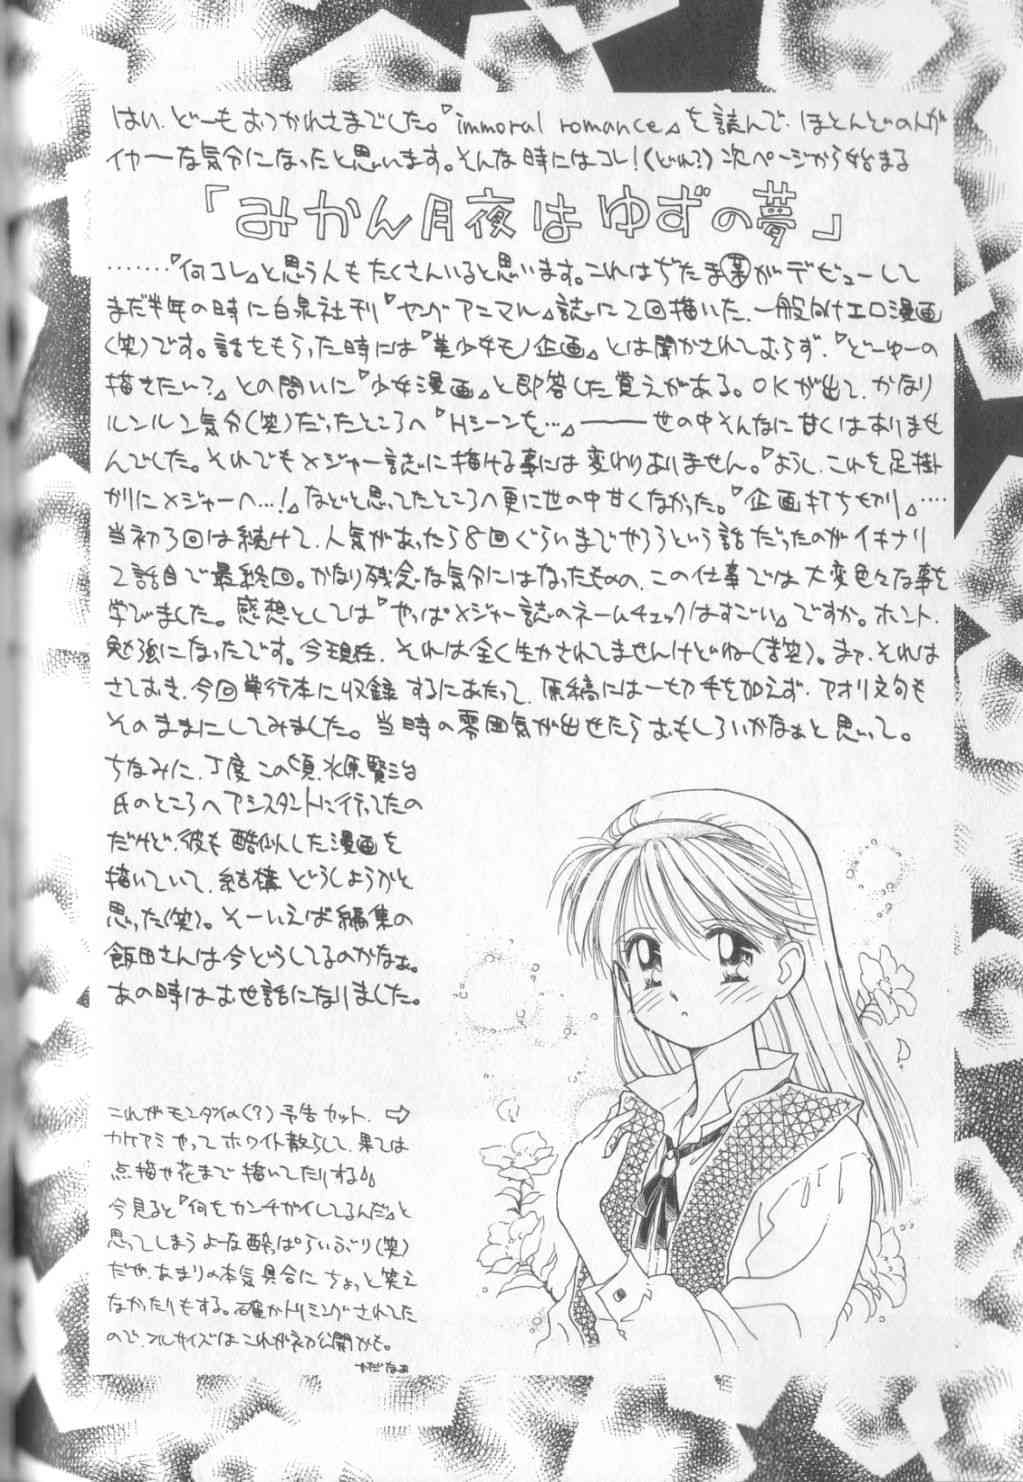 はい、どーもおつかれさまでした。『immoral romance』を読んで、ほとんどの人が
イヤーな気分になったと思います。そんな時にはコレ!(どれ?)次ページから始まる
「みかん月夜はゆずの夢」
……『何コレ』と思う人もたくさんいると思います。これはぢたま㊙がデビューして
まだ半年の時に白泉社刊『ヤングアニマル』誌に2回描いた、一般向けエロ漫画
(笑)です。話をもらった時には『美少女モノ企画』とは聞かされておらず、『どーゆーの
描きたい?』との問いに『少女漫画』と即答した覚えがある。OKが出て、かなり
ルンルン気分(笑)だったところへ『Hシーンを…』―――世の中そんなに甘くはありませ
んでした。それでもメジャー誌に描ける事には変わりありません。『ようし、これを足掛
かりにメジャーへ…!』などと思ってたところへ更に世の中甘くなかった。『企画打ち切り』…
当初3回は続けて、人気があったら8回ぐらいまでやろうという話だったのがイキナリ
2話目で最終回。かなり残念な気分にはなったものの、この仕事では大変色々な事を
学びました。感想としては『やっぱメジャー誌のネームチェックはすごい』ですか。ホント、
勉強になったです。今現在、それは全く生かされてませんけどねー(苦笑)。まァ、それは
さておき、今回単行本に収録するにあたって、原稿には一切手を加えず、アオリ文句も
そのままにしてみました。当時の雰囲気が出せたらおもしろいかなぁと思って。
ちなみに、丁度この頃、水原賢治
氏のところへアシスタントに行ってたの
だけど、彼も酷似した漫画を
描いていて、結構どうしようかと
思った(笑)。そーいえば編集の
飯田さんは今どうしてるのかなぁ。
あの時はお世話になりました。
これがモンダイの(?)予告カット。⇨
カケアミやってホワイト散らして、果ては
点描や花まで描いてたりする。
今見ると『何をカンチガイしてるんだ』と
思ってしまうよーな酔っぱらいぶり(笑)
だが、あまりの本気具合にちょっと笑え
なかったりもする。確かトリミングされてた
ので、フルサイズはこれが初公開かも。
やだなぁ